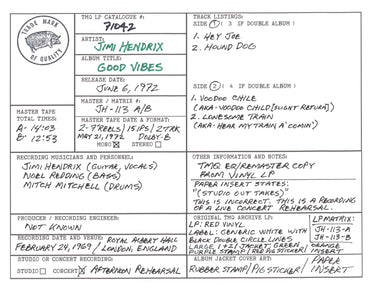 TRADE MARK
OF QUALITY
TMQ LP CATALOGUE #:
71042
ARTIST:
JIMI HENDRIX
ALBUM TITLE:
GOOD VIBES
RELEASE DATE:
JUNE 6, 1972
MASTER / MATRIX #:
JH-113 A/B
MASTER TAPE
TOTAL TIMES:
A- 14:03
B- 12:53
MASTER TAPE DATE & FORMAT:
2-7"REELS/15IPS/2TRK
MAY 21, 1972 DOLBY-B
MONO STEREO
TRACK LISTINGS:
SIDE 1 ( 3 IF DOUBLE ALBUM )
1. HEY JOE
2. HOUND DOG
SIDE 2 ( 4 IF DOUBLE ALBUM )
1. VOODOO CHILE
(AKA-VOODOO CHILD[SLIGHT RETURN])
2. LONESOME TRAIN
(AKA-HEAR MY TRAIN A' COMIN')
RECORDING MUSICIANS AND PERSONNEL:
JIMI HENDRIX (GUITAR, VOCALS)
NOEL REDDING (BASS)
MITCH MITCHELL (DRUMS)
OTHER INFORMATION AND NOTES:
TMQ EQ/REMASTER COPY
FROM VINYL LP
PAPER INSERT STATES:
"(STUDIO OUT TAKES)"
THIS IS INCORRECT. THIS IS A RECORDING
OF A LIVE CONCERT REHEARSAL.
PRODUCER / RECORDING ENGINEER:
NOT KNOWN
RECORDING DATE AND VENUE:
FEBRUARY 24, 1969 / ROYAL ALBERT HALL
LONDON, ENGLAND
STUDIO OR CONCERT RECORDING:
STUDIO CONCERT AFTERNOON REHEARSAL
ORIGINAL TMQ ARCHIVE LP:
LP: RED VINYL
LABEL: GENERIC WHITE WITH
BLACK DOUBLE CIRCLE LINES
LARGE 1+2/JACKET: GREEN
PURPLE STAMP/PIG STICKER/
LP MATRIX:
JH-113-A
JH-113-B
ORANGE
INSERT
ALBUM JACKET COVER ART:
RUBBER STAMP/PIG STICKER/ PAPER
INSERT